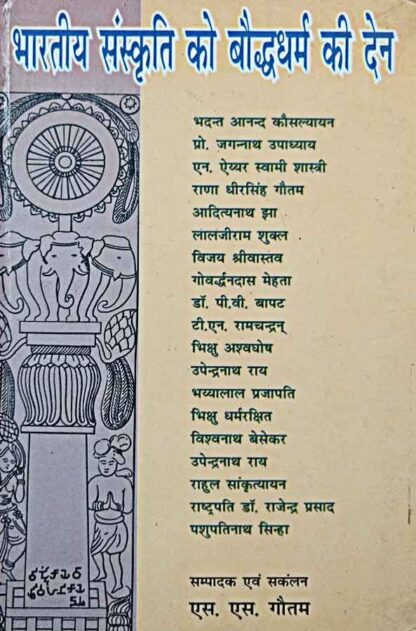 भारतीय संस्कृति को बौद्धधर्म की देन
भदन्त आनन्द कौसल्यायन
प्रो. जगन्नाथ उपाध्याय
एन. ऐय्यर स्वामी शास्त्री
राणा धीरसिंह गौतम
आदित्यनाथ झा
लालजीराम शुक्ल
विजय श्रीवास्तव
गोवर्द्धनदास मेहता
डॉ. पी.वी. बापट
टी.एन. रामचन्द्रन्
भिक्षु अश्वघोष
उपेन्द्रनाथ राय
भय्यालाल प्रजापति
भिक्षु धर्मरक्षित
विश्वनाथ बेसेकर
उपेन्द्रनाथ राय
राहुल सांकृत्यायन
राष्ट्रपति डॉ. राजेन्द्र प्रसाद
पशुपतिनाथ सिन्हा
सम्पादक एवं संकलन
एस. एस. गौतम